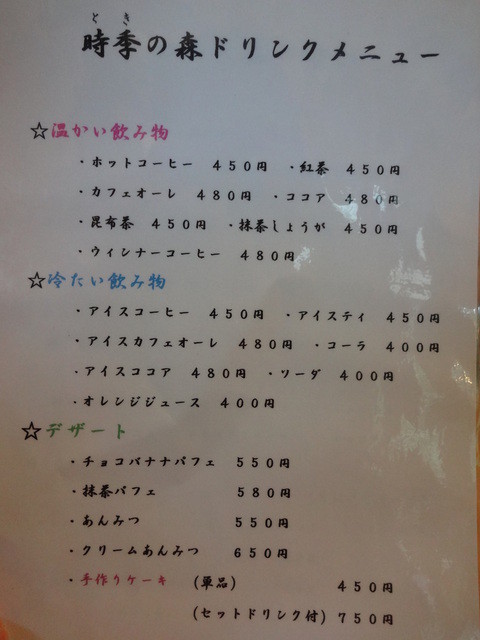 とき
時季の森ドリンクメニュー
☆温かい飲み物
・ホットコーヒー 450円 ・紅茶 450円
・カフェオーレ 480円 ・ココア 480円
・昆布茶 450円 ・抹茶しょうが 450円
・ウィンナーコーヒー 480円
☆冷たい飲み物
・アイスコーヒー 450円 ・アイスティ 450円
・アイスカフェオーレ 480円 ・コーラ 400円
・アイスココア 480円 ・ソーダ 400円
・オレンジジュース 400円
☆デザート
・チョコバナナパフェ 550円
・抹茶パフェ 580円
・あんみつ 550円
・クリームあんみつ 650円
・手作りケーキ (単品) 450円
(セットドリンク付) 750円